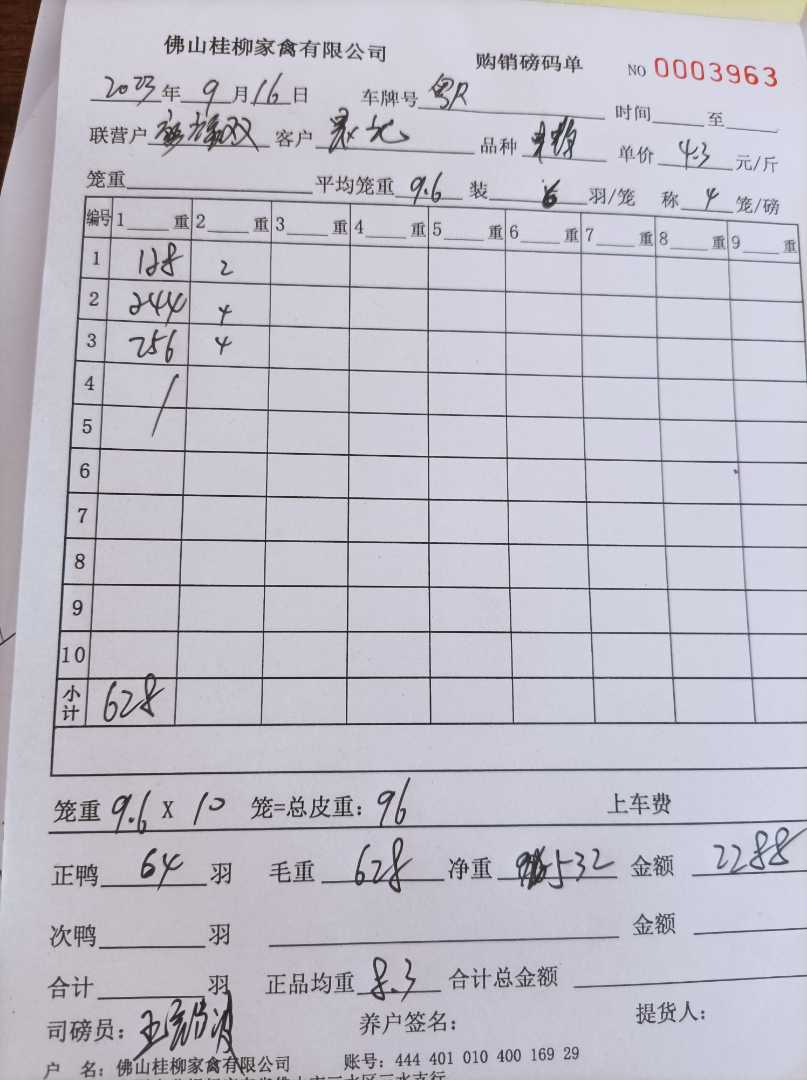 佛山桂柳家禽有限公司 购销磅码单 NO 0003963
2023年 9月16日 车牌号 粤R 时间 至
联营户 双 客户 品种 单价 4.3 元/斤
笼重 平均笼重 9.6 装 6 羽/笼 称 4 笼/磅
编号 1 重 2 重 3 重 4 重 5 重 6 重 7 重 8 重 9 重
1 128 2
2 244 4
3 256 4
4
5
6
7
8
9
10
小计 628
笼重 9.6 X 10 笼=总皮重: 96 上车费
正鸭 64 羽 毛重 628 净重 532 金额 2288
次鸭 羽 金额
合计 羽 正品均重 8.3 合计总金额
司磅员: 王 养户签名: 提货人:
户 名: 佛山桂柳家禽有限公司 账号: 444 401 010 400 169 29